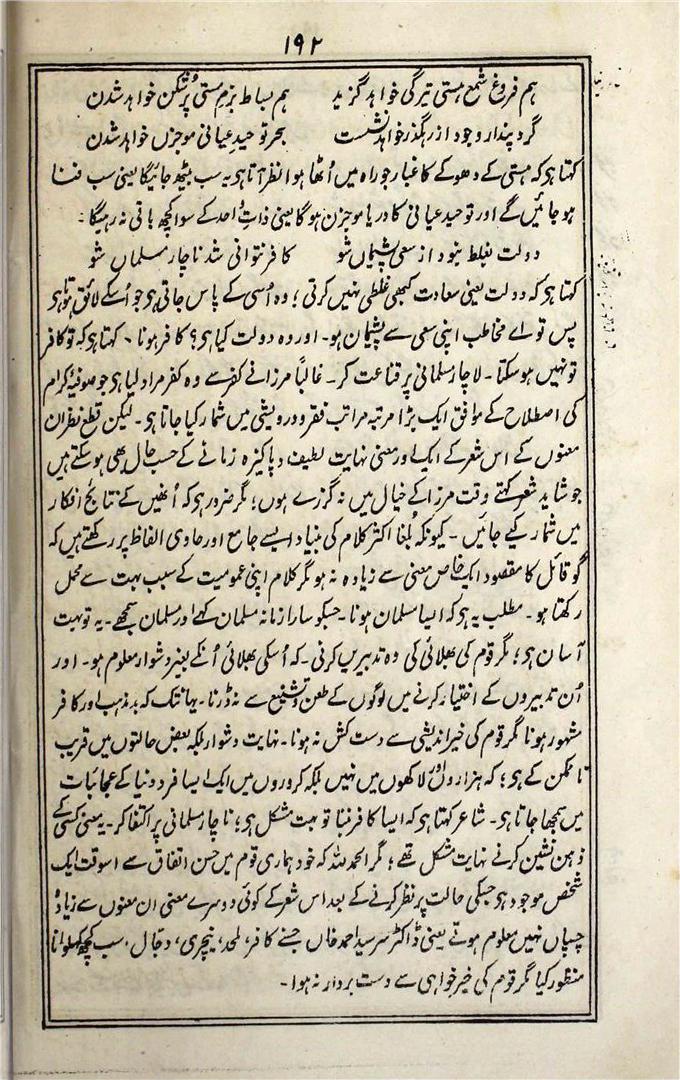 ۱۹۲
ہم فروغِ شمعِ ہستی تیرگی خواہد گزید ہم بساطِ بزمِ مستی پُرشکن خواہد شدن
گردِ پندارِ وجود از رہگذر خواہد نشست بحرِ توحیدِ عیانی موجزن خواہد شدن
کہتا ہی کہ ہستی کے دھوکے کا غبار جو راہ میں اُٹھا ہوا نظر آتا ہی یہ سب بیٹھ جائیگا یعنی سب فنا
ہو جائیں گے اور توحید عیانی کا دریا موجزن ہوگا یعنی ذاتِ واحد کے سوا کچھ باقی نہ رہیگا۔
دولت بغلط نبود از سعی پشیماں شو کافر نتوانی شد ناچار مسلماں شو
کہتا ہی کہ دولت یعنی سعادت کبھی غلطی نہیں کرتی؛ وہ اُسی کے پاس جاتی ہی جو اُسکے لائق ہوتا ہی
پس تو اے مخاطب اپنی سعی سے پشیمان ہو۔ اور وہ دولت کیا ہی؟ کافر ہونا۔ کہتا ہی کہ تو کافر
تو نہیں ہوسکتا۔ لاچار مسلمانی پر قناعت کر۔ غالباً مرزا نے کفر سے وہ کفر مراد لیا ہی جو صوفیۂ کرام
کی اصطلاح کے موافق ایک بڑا مرتبہ مراتب فقر و درویشی میں شمار کیا جاتا ہی۔ لیکن قطع نظر ان
معنوں کے اس شعر کے ایک اور معنی نہایت لطیف و پاکیزہ زمانے کے حسب حال بھی ہوسکتے ہیں
جو شاید شعر کہتے وقت مرزا کے خیال میں نہ گزرے ہوں؛ مگر ضرور ہی کہ اُنھیں کے نتائجِ افکار
میں شمار کیے جائیں۔ کیونکہ بُلغا اکثر کلام کی بنیاد ایسے جامع اور حاوی الفاظ پر رکھتے ہیں کہ
گو قائل کا مقصود ایک خاص معنی سے زیادہ نہ ہو مگر کلام اپنی عمومیت کے سبب بہت سے محمل
رکھتا ہو۔ مطلب یہ ہی کہ ایسا مسلمان ہونا۔ جسکو سارا زمانہ مسلمان کہے اور مسلمان سمجھے۔ یہ تو بہت
آسان ہی؛ مگر قوم کی بھلائی کی وہ تدبیریں کرنی۔ کہ اُسکی بھلائی اُنکے بغیر دشوار معلوم ہو۔ اور
اُن تدبیروں کے اختیار کرنے میں لوگوں کے طعن و تشنیع سے نہ ڈرنا۔ یہانتک کہ بدمذہب اور کافر
مشہور ہونا مگر قوم کی خیراندیشی سے دست کش نہ ہونا۔ نہایت دشوار بلکہ بعض حالتوں میں قریب
ناممکن کے ہی؛ کہ ہزاروں اور لاکھوں میں نہیں بلکہ کروروں میں ایک ایسا فرد دنیا کے عجائبات
میں سمجھا جاتا ہی۔ شاعر کہتا ہی کہ ایسا کافر بننا تو بہت مشکل ہی؛ ناچار مسلمانی پر اکتفا کر۔ یہ معنی کسی کے
ذہن نشین کرنے نہایت مشکل تھے؛ مگر الحمد للہ کہ خود ہماری قوم میں حسن اتفاق سے اسوقت ایک
شخص موجود ہی جسکی حالت پر نظر کرنے کے بعد اس شعر کے کوئی دوسرے معنی ان معنوں سے زیادہ
چسپاں نہیں معلوم ہوتے یعنی ڈاکٹر سر سید احمد خاں جسنے کافر، ملحد، نیچری، دجال، سب کچھ کہلوانا
منظور کیا مگر قوم کی خیرخواہی سے دست بردار نہ ہوا۔